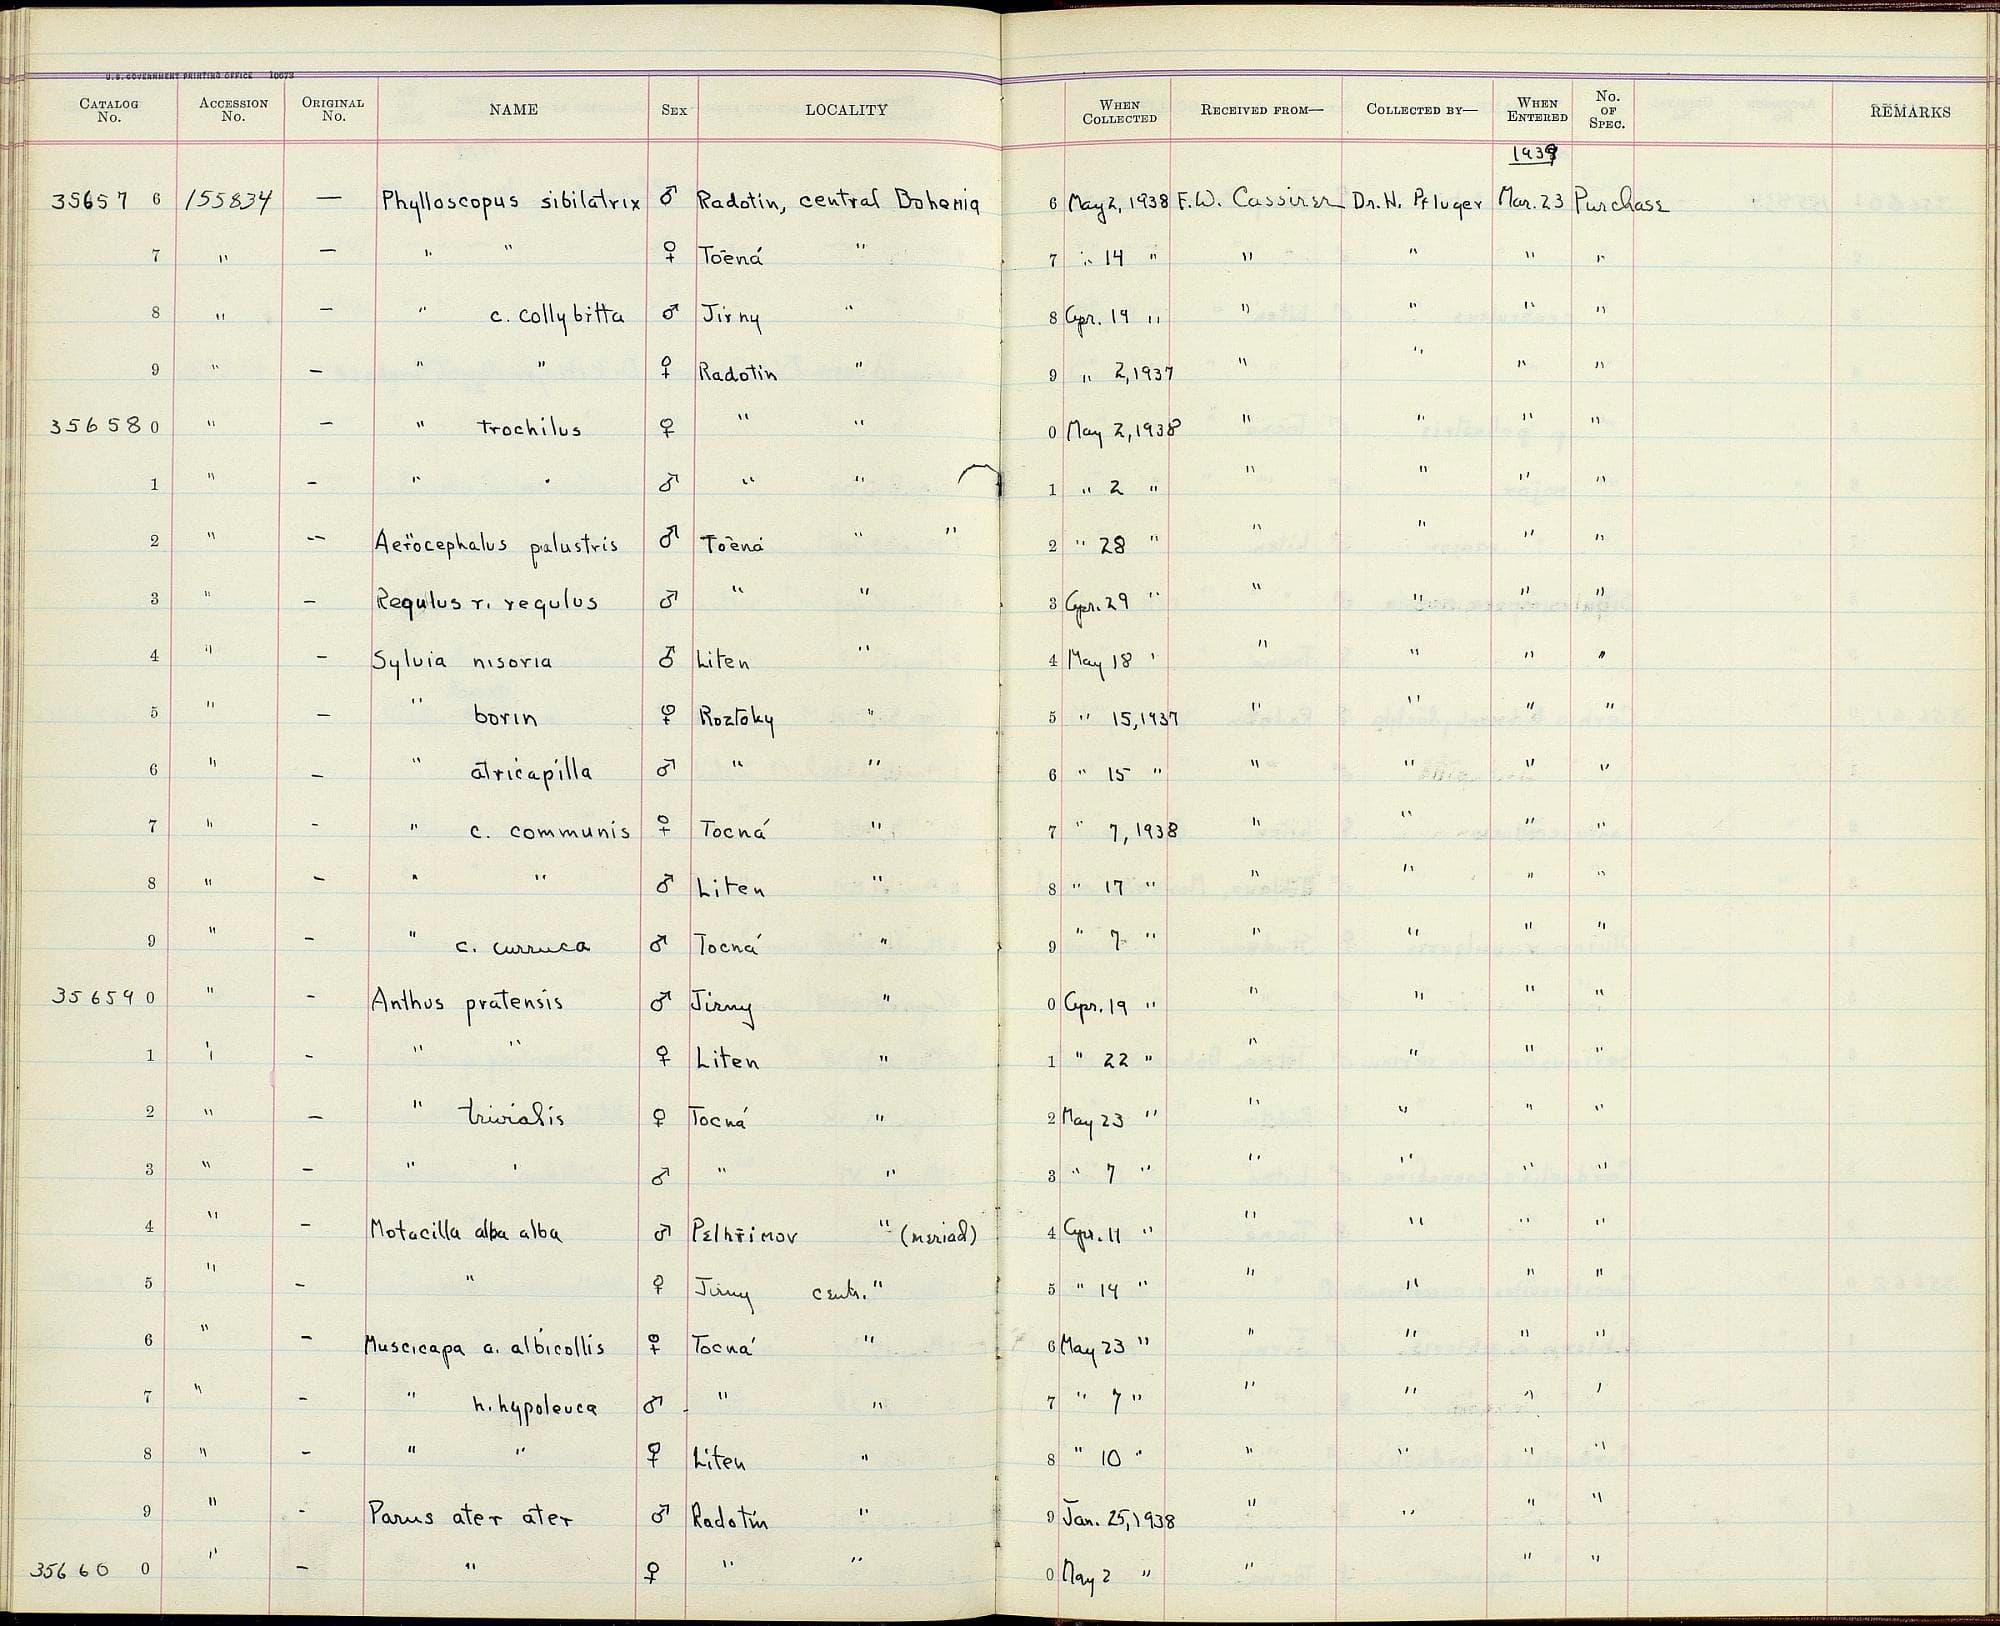 U.S. GOVERNMENT PRINTING OFFICE 10673
CATALOG No. ACCESSION No. ORIGINAL No. NAME SEX LOCALITY WHEN COLLECTED RECEIVED FROM— COLLECTED BY— WHEN ENTERED No. OF SPEC. REMARKS
1939
35657 6 155834 — Phylloscopus sibilatrix ♂ Radotin, central Bohemia 6 May 2, 1938 F.W. Cassirer Dr. H. Pfluger Mar. 23 Purchase
7 " — " " ♀ Toená " 7 " 14 " " " " "
8 " — " c. collybitta ♂ Jirny " 8 Apr. 19 " " " " "
9 " — " " ♀ Radotin " 9 " 2, 1937 " " " "
35658 0 " — " trochilus ♀ " " 0 May 2, 1938 " " " "
1 " — " " ♂ " " 1 " 2 " " " " "
2 " — Aerocephalus palustris ♂ Toená " " 2 " 28 " " " " "
3 " — Regulus r. regulus ♂ " " 3 Apr. 29 " " " " "
4 " — Sylvia nisoria ♂ Liten " 4 May 18 " " " " "
5 " — " borin ♀ Roztoky " 5 " 15, 1937 " " " "
6 " — " atricapilla ♂ " " 6 " 15 " " " " "
7 " — " c. communis ♀ Tocná " 7 " 7, 1938 " " " "
8 " — " " ♂ Liten " 8 " 17 " " " " "
9 " — " c. curruca ♂ Tocná " 9 " 7 " " " " "
35659 0 " — Anthus pratensis ♂ Jirny " 0 Apr. 19 " " " " "
1 " — " " ♀ Liten " 1 " 22 " " " " "
2 " — " trivialis ♀ Tocná " 2 May 23 " " " " "
3 " — " " ♂ " " 3 " 7 " " " " "
4 " — Motacilla alba alba ♂ Pelhřimov " (meriad) 4 Apr. 11 " " " " "
5 " — " ♀ Jirny centr. " 5 " 14 " " " " "
6 " — Muscicapa a. albicollis ♀ Tocná " 6 May 23 " " " " "
7 " — " h. hypoleuca ♂ " " 7 " 7 " " " " "
8 " — " " ♀ Liten " 8 " 10 " " " " "
9 " — Parus ater ater ♂ Radotin " 9 Jan. 25, 1938 " " " "
35660 0 " — " ♀ " " 0 May 2 " " " "